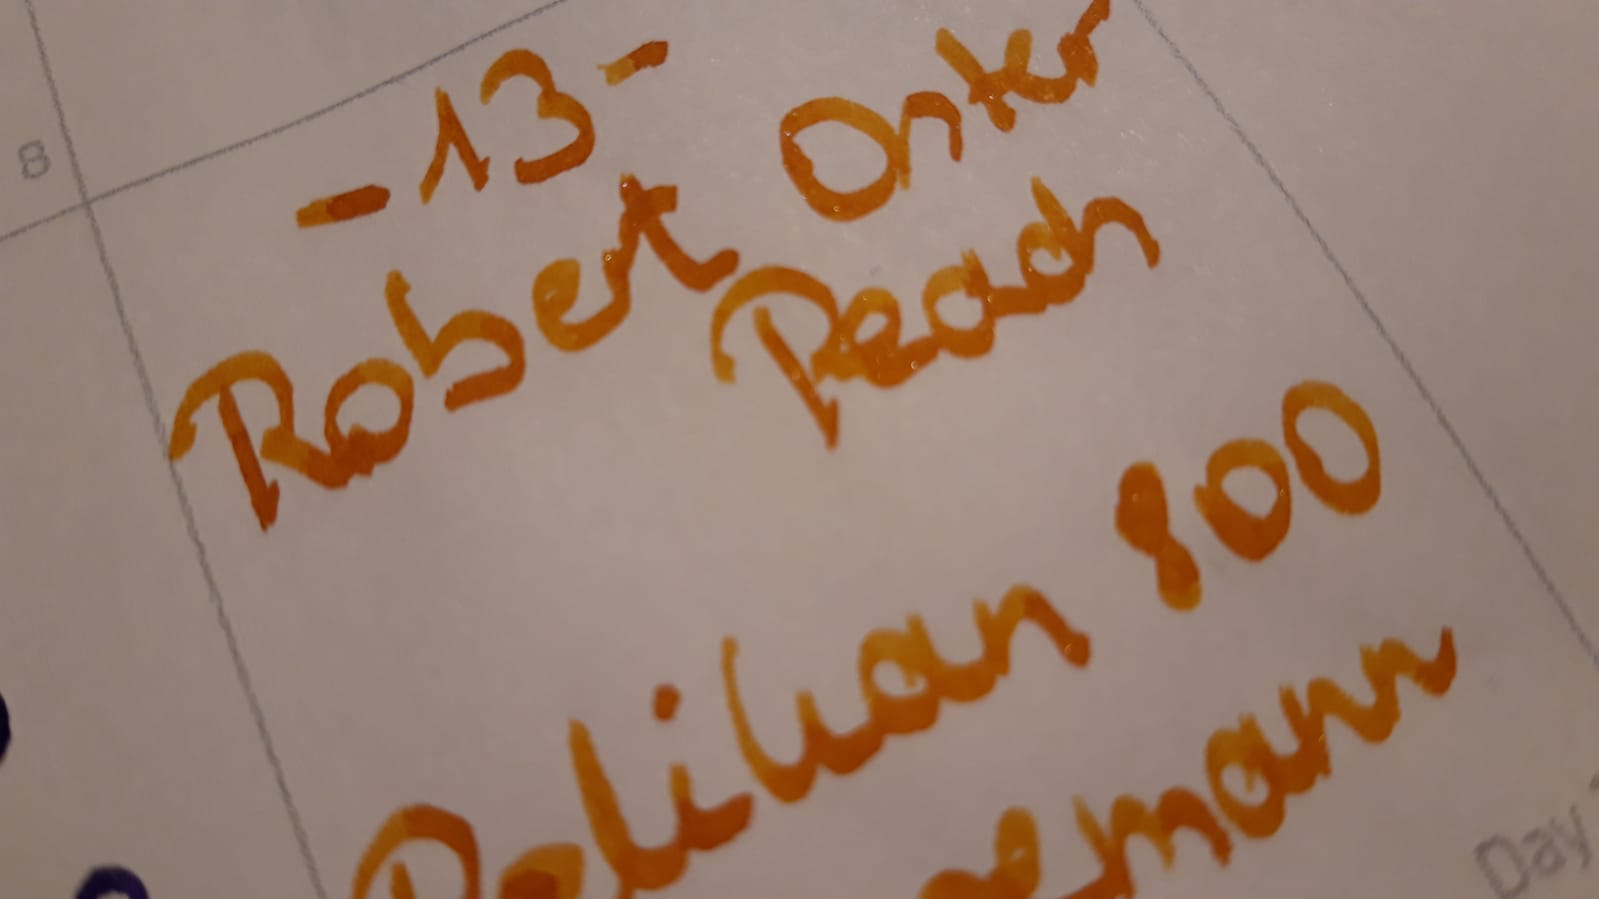 8
-13-
Robert Oster
Peach
Pelikan 800
Day